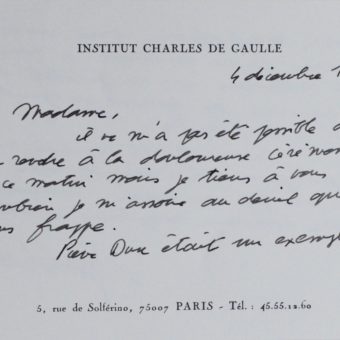 INSTITUT CHARLES DE GAULLE
4 décembre 1
Madame,
il ne m'a pas été possible d
rendre à la douloureuse cérémon
ce matin mais je tiens à vous
combien je m'associe au deuil qu
us frappe.
Pierre Dux était un exempl
5, rue de Solférino, 75007 PARIS - Tél. : 45.55.12.60